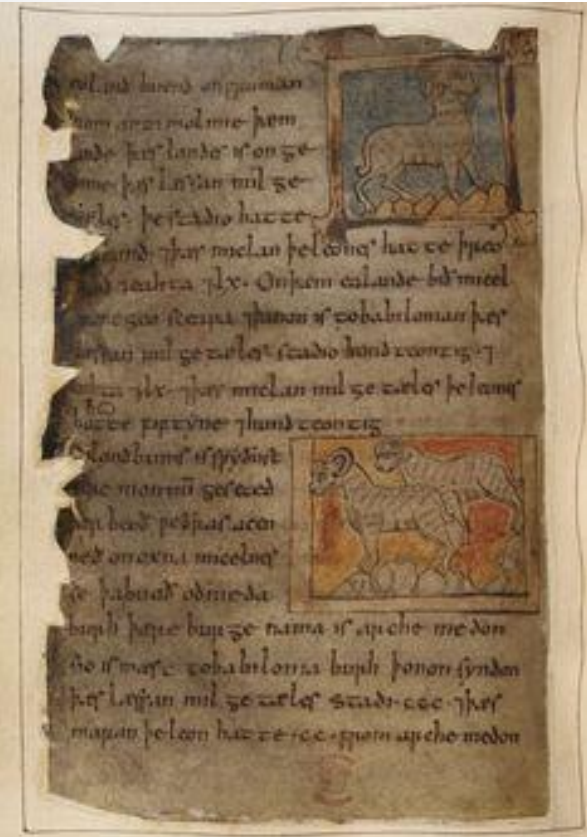 land buend on fruman
from antimolime þæm
lande þæs landes is on ge
rime þæs læssan mil ge
tæles þe stadio hatte
hund ⁊ þæs miclan þe leones hatte þreo
hund ⁊ eahta ⁊ lx. On þæm ealande bið micel
menegeo sceapa ⁊ þanon is to babiloniam þæs
læssan mil getæles stadio hund teontig ⁊
eahta ⁊ lx. ⁊ þæs miclan mil getæles þe leones
hatte fiftyne ⁊ hund teontig
landbunis is swyðust
monnum geseted
þær beoð weðras acen
ned on oxna micelnes
se þa buað oð meda
burh þære burge nama is archemedon
seo is mæst to babilonia burh þonon syndon
þæs læssan mil getæles stadi . ccc . ⁊ þæs
maran þe leon hatte . cc . from archemedon